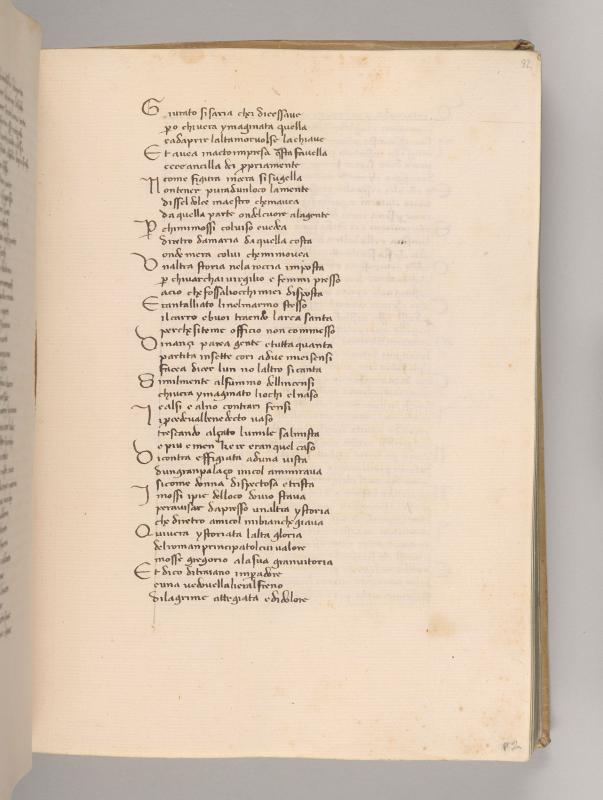 92
Giurato si saria chei dicessaue
po chiuera ymaginata quella
cadaprir laltamor uolse la chiaue
Et auea inacto impresa qsta fauella
ecce ancilla dei ppriamente
come figura incera si sugella
Non tener pura dun loco lamente
disse l dolce maestro chemauea
da quella parte ondel cuore a la gente
Pchimimossi col uiso e uedea
diretro da maria da quella costa
Onde mera colui chemimouea
unaltra storia nela roccia imposta
p chiuarchai uirgilio e femmi presso
acio che fossaliocchi miei disposta
Era intalliato li nel marmo stesso
il carro e buoi traendo larca santa
perche si teme officio non commesso
Dinançi parea gente e tutta quanta
partita in sette cori a due mei sensi
facea dicer lun no laltro si canta
Similmente al fummo dellincensi
chiuera ymaginato liochi el naso
Ie alsi e alno contrari fensi
Ipcedeva l benedecto uaso
trescando alçato lumile salmista
e piu e men che re era n quel caso
Dicontra effigiata ad una uista
dun gran palaço micol ammiraua
si come donna dispectosa e trista
Imossi ipie del loco douio staua
per auisar da presso unaltra ystoria
che diretro amicol mi biancheggiaua
Quiuera ystoriata lalta gloria
del roman principato l cui ualore
mosse gregorio a la sua gran uitoria
Et dico di traiano impadore
e una uedouella li era l freno
di lagrime atteggiata e di dolore
92